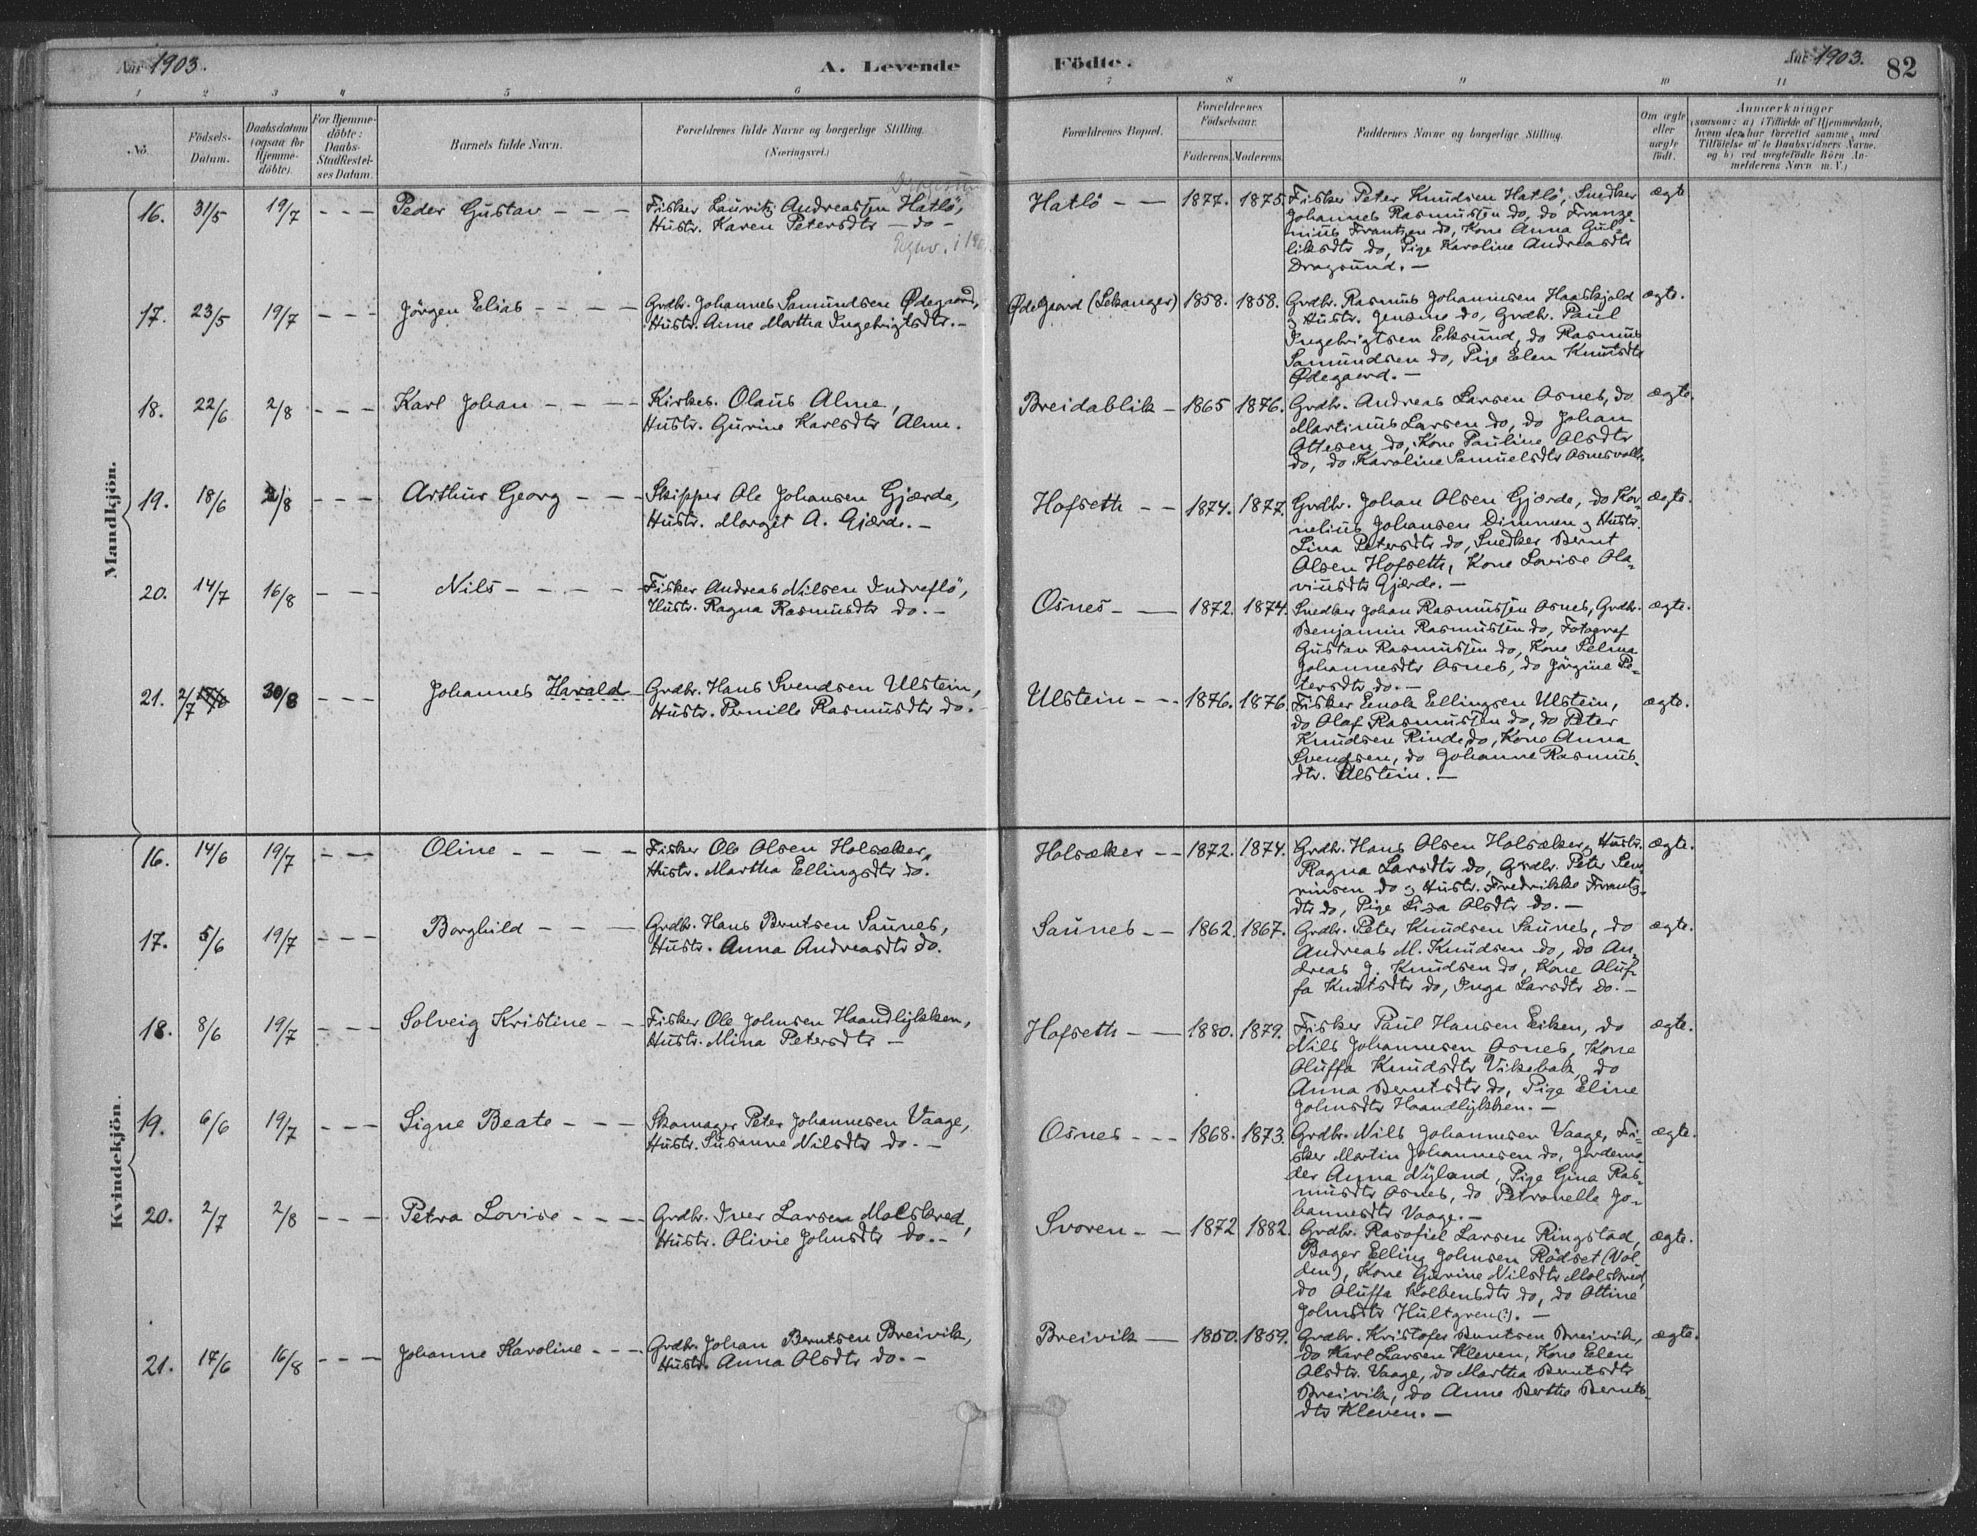 Aar 1903.
A. Levende
Födte.
Aar 1903.
82
1 2 3 4 5 6 7 8 9 10 11
No.
Födsels-
Datum.
Daabsdatum
(ogsaa for
Hjemme-
döbte).
For Hjemme-
döbte:
Daabs-
Stadfæstel-
ses Datum.
Barnets fulde Navn.
Forældrenes fulde Navne og borgerlige Stilling.
(Næringsvei.)
Forældrenes Bopæl.
Forældrenes
Födselsaar.
Faderens. Moderens.
Faddernes Navne og borgerlige Stilling.
Om ægte
eller
uægte
födt.
Anmærkninger
(saasom: a) i Tilfælde af Hjemmedaab,
hvem den har forrettet samme, med
Tilföielse af to Daabsvidners Navne,
og b) ved uægtefödte Börn An-
melderens Navn m. V.)
Mandkjön.
16. 31/5 19/7 - - - Peder Gustav - - -
Fisker Lauritz Andreassen Hatlö,
Hustr. Karen Petersdtr - do -
Hatlö - - 1877. 1875.
Fisker Peter Knudsen Hatlö, Snedker
Johannes Rasmussen do, do Franze-
nius Frantzen do, Kone Anna Gul-
liksdtr do, Pige Karoline Andreasdtr
Dragsund. -
ægte
17. 23/5 19/7 - - - Jörgen Elias - - - -
Grdbr. Johannes Samundsen Ødegaard,
Hustr. Anne Martha Ingebrigtsdtr. -
Ødegaard (Lekanger) 1858. 1858.
Grdbr. Rasmus Johannesen Haaskjold
og Hustr. Jensine do, Grdbr. Paul
Ingebrigtsen Eksund, do Rasmus
Samundsen do, Pige Elen Knutsdtr
Ødegaard. -
ægte.
18. 22/6 2/8 - - - Karl Johan - - - -
Kirkes. Olaus Alme,
Hustr. Gurine Karlsdtr Alme.
Breidablik - 1865 1876.
Grdbr. Andreas Larsen Osnes, do
Martinus Larsen do, do Johan
Ottesen do, Kone Pauline Olsdtr
do, do Karoline Samuelsdtr Osnesvolle.
ægte.
19. 18/6 2/8 - - - Arthur Georg - - -
Skipper Ole Johansen Gjærde,
Hustr. Margit A. Gjærde. -
Hofseth - - 1874. 1877.
Grdbr. Johan Olsen Gjærde, do Kor-
nelius Johansen Dimmen og Hustr.
Lina Petersdtr do, Snedker Bernt
Olsen Hofseth, Kone Lovise Ola-
viusdtr Gjærde. -
ægte.
20. 14/7 16/8 - - - Nils - - - - -
Fisker Andreas Nilsen Indreflö,
Hustr. Ragna Rasmusdtr do. -
Osnes - - 1872. 1874.
Snedker Johan Rasmussen Osnes, Grdbr.
Benjamin Rasmussen do, Fotograf
Gustav Rasmussen do, Kone Selma
Johannesdtr Osnes, do Jörgine Pe-
tersdtr do. -
ægte.
21. 2/7 30/8 - - - Johannes Harald
Grdbr. Hans Svendsen Ulstein,
Hustr. Pernille Rasmusdtr do. -
Ulstein - - - 1876. 1876.
Fisker Enok Ellingsen Ulstein,
do Olaf Rasmussen do, do Peter
Knudsen Rinde do, Kone Anna
Svendsen, do Johanne Rasmus-
dtr. Ulstein. -
ægte.
Kvindekjön.
16. 14/6 19/7 - - - Oline - - - -
Fisker Ole Olsen Holsæker,
Hustr. Martha Ellingsdtr do.
Holsæker - - 1872. 1874.
Grdbr. Hans Olsen Holsæker og Hustr.
Ragna Larsdtr do, Grdbr. Peter Sev-
rinsen do og Hustr. Fredrikke Frantz-
dtr do, Pige Lisa Olsdtr do. -
ægte.
17. 5/6 19/7 - - - Borghild - - -
Grdbr. Hans Berntsen Saunes,
Hustr. Anna Andreasdtr do.
Saunes - - 1862. 1867.
Grdbr. Peter Knudsen Saunes, do
Andreas M. Knudsen do, do An-
dreas J. Knudsen do, Kone Oluf-
fa Knutsdtr do, Inga Larsdtr do. -
ægte.
18. 8/6 19/7 - - - Solveig Kristine - -
Fisker Ole Johnsen Haandlykken,
Hustr. Mina Petersdtr -
Hofseth - - 1880. 1879.
Fisker Paul Hansen Eiken, do
Nils Johannesen Osnes, Kone
Oluffa Knudsdtr Vikebak, do
Anna Berntsdtr do, Pige Eline
Johnsdtr Haandlykken. -
ægte.
19. 6/6 19/7 - - - Signe Beate - - -
Skomager Peter Johannesen Vaage,
Hustr. Susanne Nilsdtr do. -
Osnes - - - 1868. 1873.
Grdbr. Nils Johannesen Vaage, Fi-
sker Martin Johannesen do, Jordemo-
der Anna Nyland, Pige Gina Ras-
musdtr Osnes, do Petronelle Jo-
hannesdtr Vaage. -
ægte.
20. 2/7 2/8 - - - Petra Lovise - - -
Grdbr. Iver Larsen Molsbred,
Hustr. Olivie Johnsdtr do. -
Svoren - - 1872 1882.
Grdbr. Rasofiel Larsen Ringstad,
Bager Elling Johnsen Rödset (Vol-
den), Kone Gurine Nilsdtr Molsbred,
do Oluffa Kolbensdtr do, do Ottine
Johnsdtr Hultgren(?). -
ægte.
21. 17/6 16/8 - - - Johanne Karoline - - -
Grdbr. Johan Berntsen Breivik,
Hustr. Anna Olsdtr do. -
Breivik - 1850. 1859.
Grdbr. Kristofer Berntsen Breivik,
do Karl Larsen Kleven, Kone Elen
Olsdtr. Vaage, do Martha Berntsdtr
Breivik, do Anne Berthe Bernts-
dtr Kleven. -
ægte.